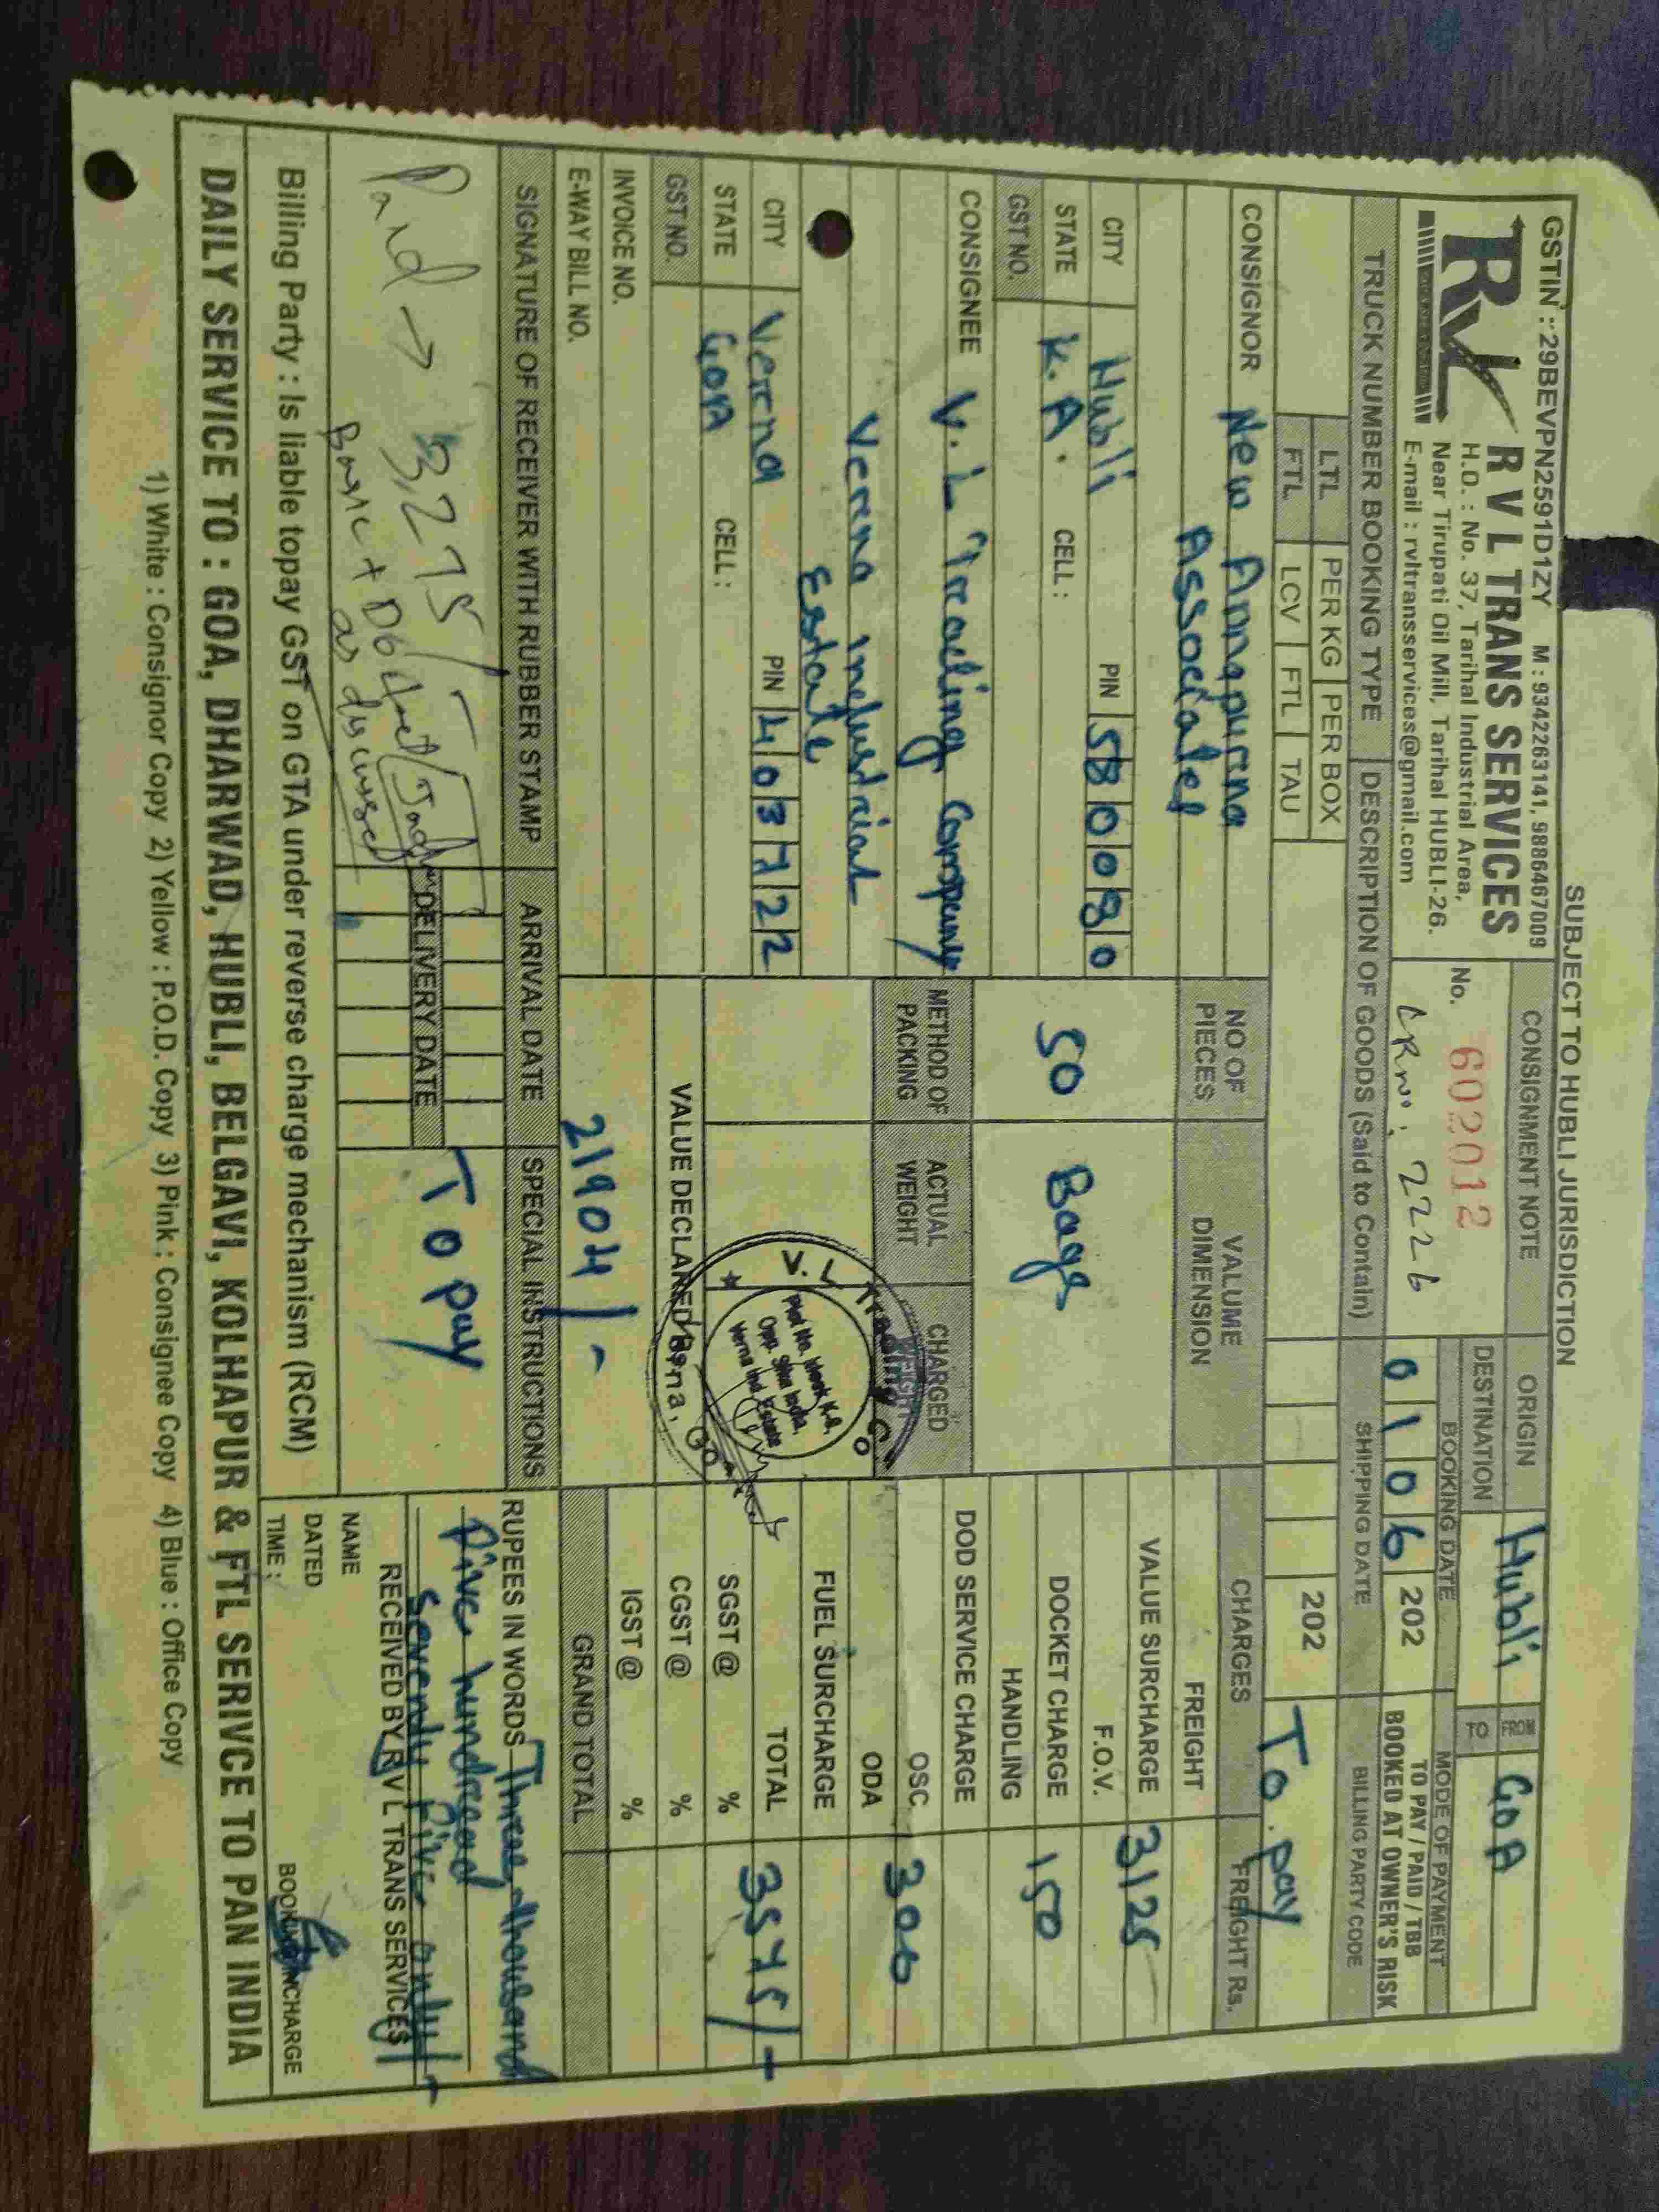 SUBJECT TO HUBLI JURISDICTION
GSTIN : 29BEVPN2591D1ZY M : 9342263141, 9886467009
RVL
R V L TRANS SERVICES
H.O. : No. 37, Tarihal Industrial Area,
Near Tirupati Oil Mill, Tarihal HUBLI-26.
E-mail : rvltransservices@gmail.com
CONSIGNMENT NOTE
No. 602012
LR no: 2226
ORIGIN Hubli FROM GOA
DESTINATION TO
BOOKING DATE MODE OF PAYMENT
0 1 0 6 202 TO PAY / PAID / TBB
BOOKED AT OWNER'S RISK
TRUCK NUMBER BOOKING TYPE DESCRIPTION OF GOODS (Said to Contain) SHIPPING DATE BILLING PARTY CODE
LTL PER KG PER BOX
FTL LCV FTL TAU
202 To. pay
CONSIGNOR New Annapurna
Associates
CITY Hubli PIN 580080
STATE K.A. CELL :
GST NO.
CONSIGNEE V. L Trading Company
Verna Industrial
Estate
CITY Verna PIN 403722
STATE GOA CELL :
GST NO.
INVOICE NO.
E-WAY BILL NO.
NO OF PIECES VALUME DIMENSION
50 Bags
METHOD OF PACKING ACTUAL WEIGHT CHARGED WEIGHT
VALUE DECLARED
21904/-
V. L Trading Co
Opp.
Verna Ind Estate
Verna, Goa
CHARGES FREIGHT Rs.
FREIGHT
VALUE SURCHARGE 3125
F.O.V.
DOCKET CHARGE 150
HANDLING
DOD SERVICE CHARGE
OSC. 300
ODA
FUEL SURCHARGE
TOTAL 3575/-
SGST @ %
CGST @ %
IGST @ %
GRAND TOTAL
SIGNATURE OF RECEIVER WITH RUBBER STAMP ARRIVAL DATE SPECIAL INSTRUCTIONS
Paid → 3,275/-
as discussed
DELIVERY DATE
To pay
RUPEES IN WORDS Three thousand
Five hundread
Seventy Five only/-
RECEIVED BY R V L TRANS SERVICES
NAME
DATED
TIME : BOOKING INCHARGE
Billing Party : Is liable topay GST on GTA under reverse charge mechanism (RCM)
DAILY SERVICE TO : GOA, DHARWAD, HUBLI, BELGAVI, KOLHAPUR & FTL SERIVCE TO PAN INDIA
1) White : Consignor Copy 2) Yellow : P.O.D. Copy 3) Pink : Consignee Copy 4) Blue : Office Copy